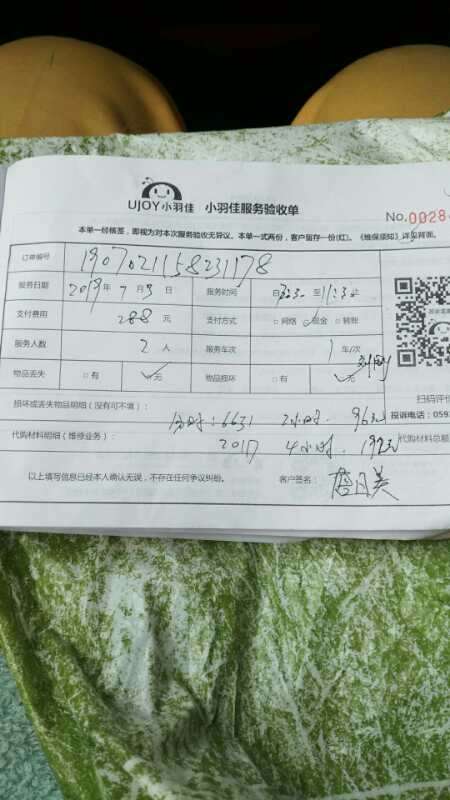 UJOY小羽佳 小羽佳服务验收单
No.0028
本单一经核签，即视为对本次服务验收无异议。本单一式两份，客户留存一份(红)。《维保须知》详见背面。
订单编号 1907021158231178
服务日期 2019 年 7 月 3 日 服务时间 至 11:32
支付费用 288 元 支付方式 □网络 ☑现金 □转账
服务人数 2 人 服务车次 1 车/次
物品丢失 □有 ☑无 物品损坏 □有 ☑无
扫码评价
损坏或丢失物品明细（没有可不填）： 投诉电话：059
6631 2小时. 96元
代购材料明细（维修业务）： 代购材料总额
2017 4小时. 192元
以上填写信息已经本人确认无误，不存在任何争议纠纷。 客户签名：